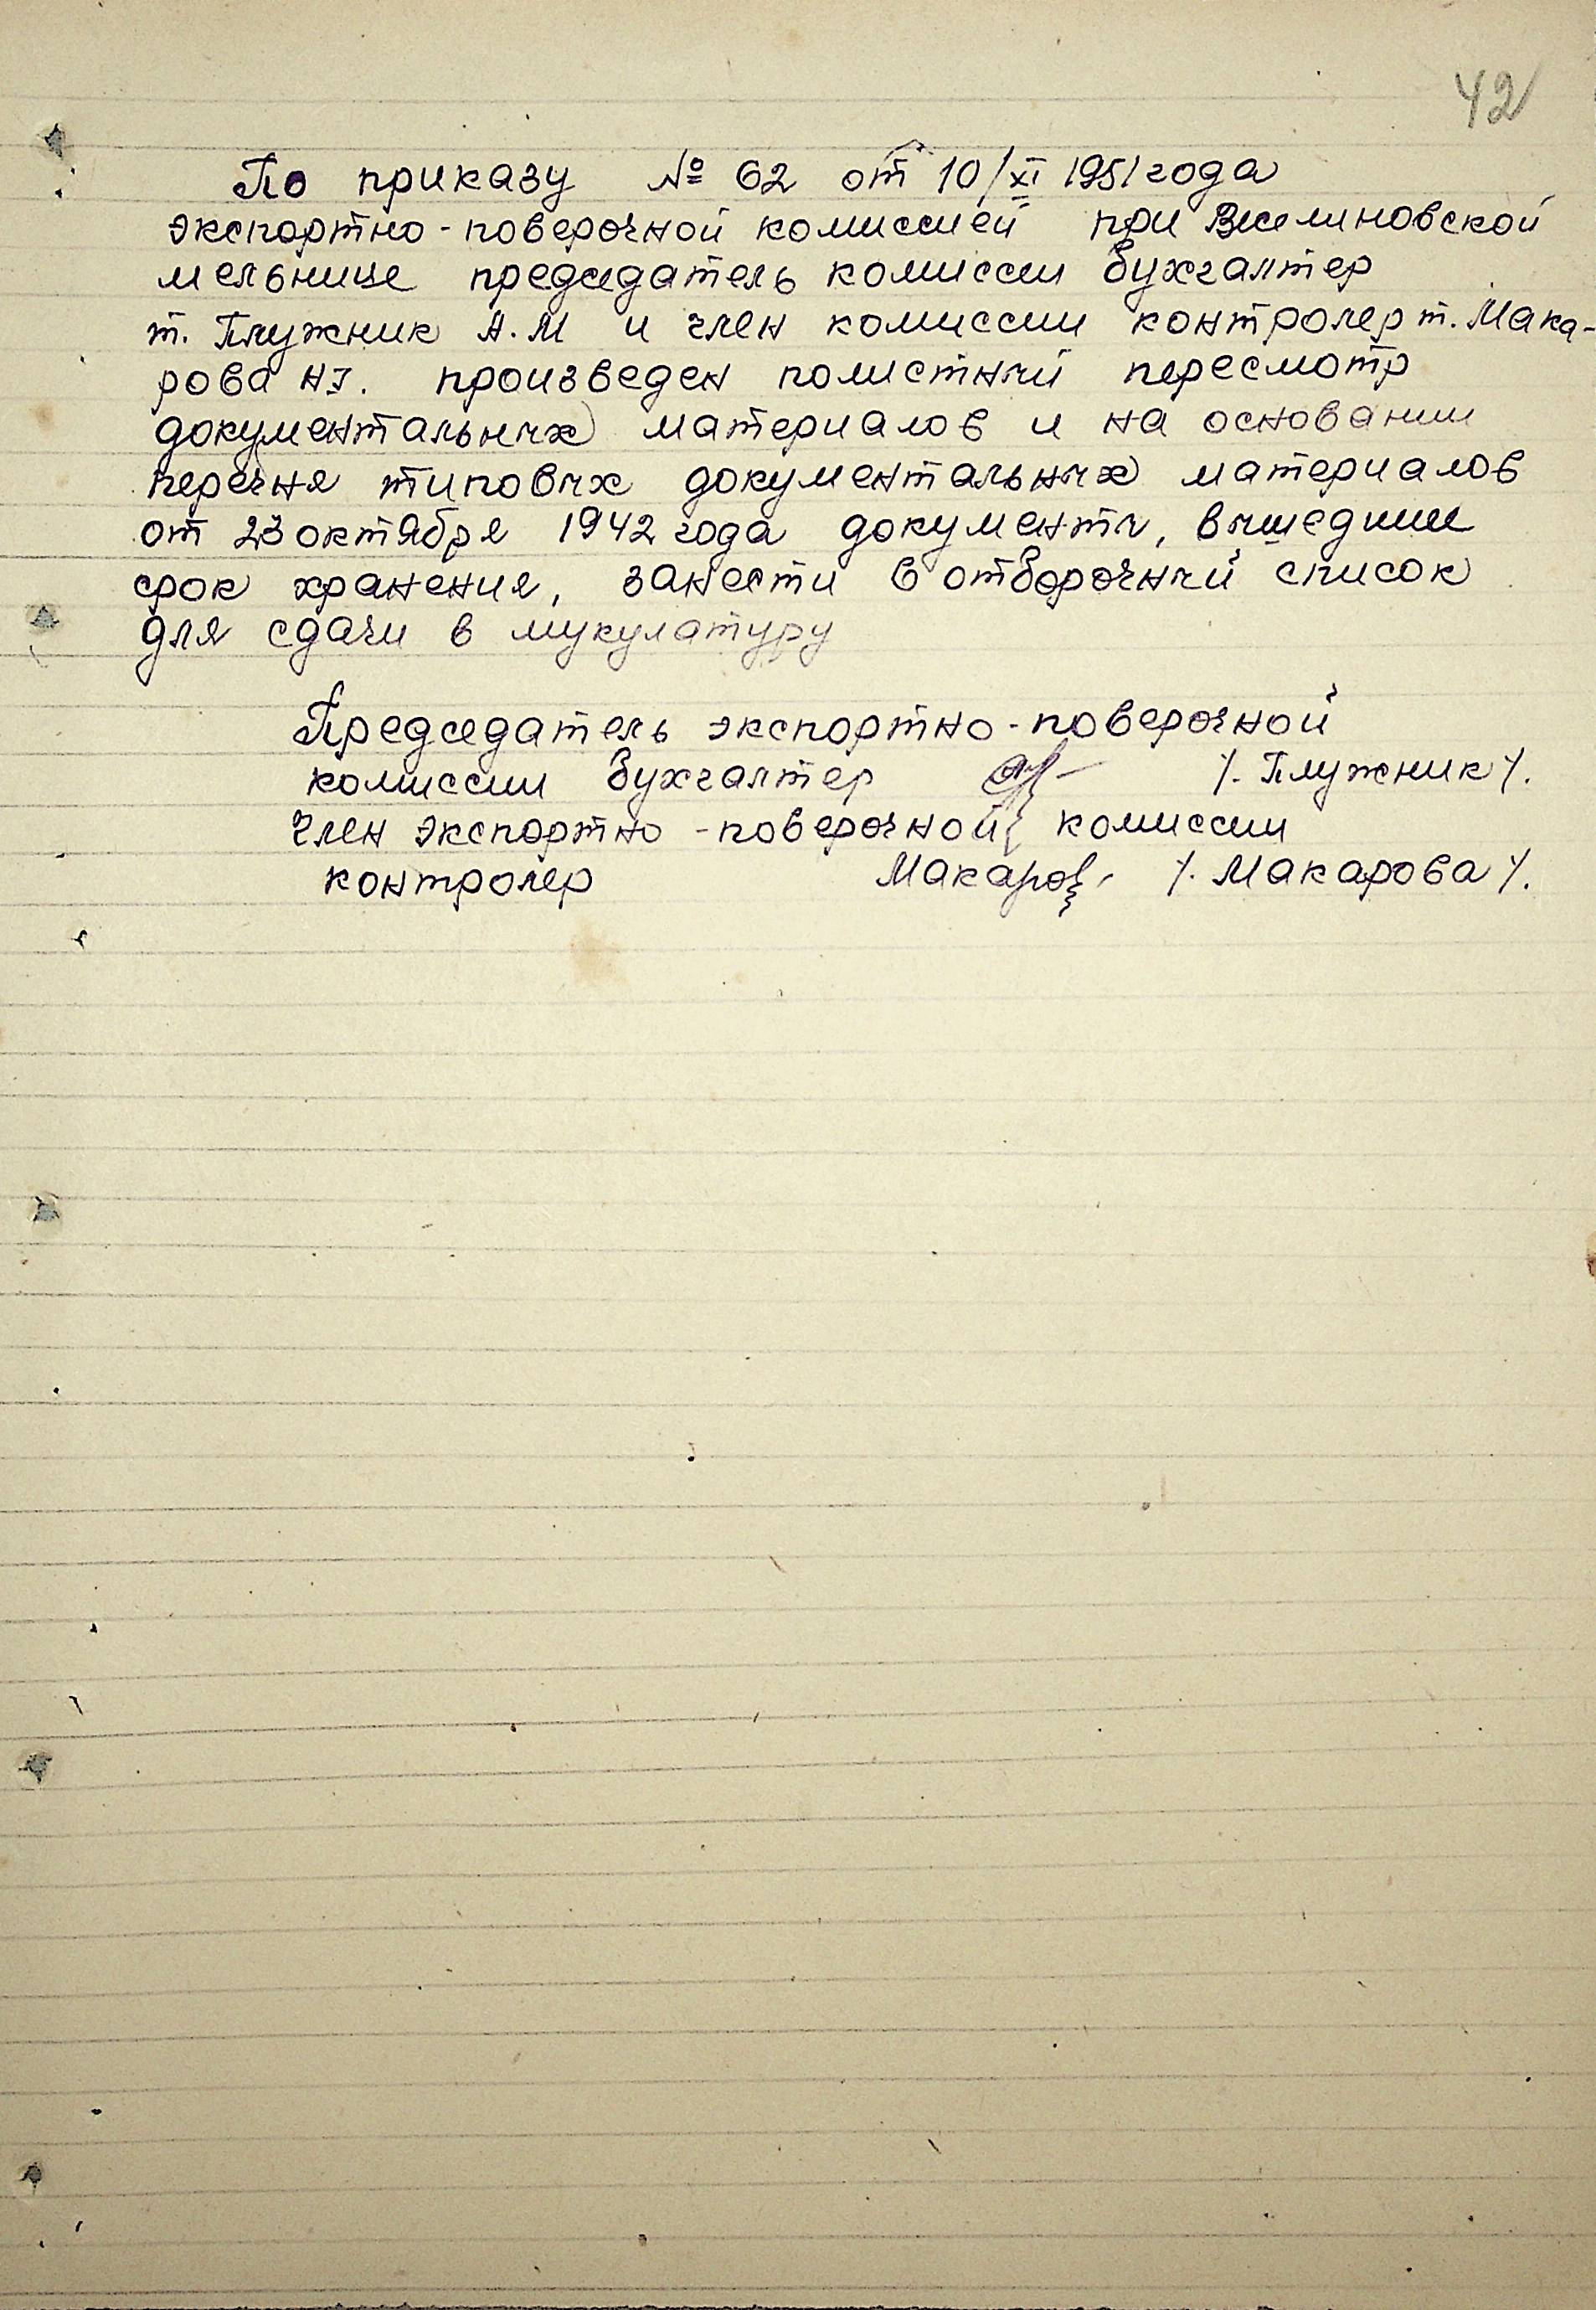 42
По приказу № 62 от 10/XI 1951 года
экспортно-поверочной комиссией при Веселиновской
мельнице председатель комиссии бухгалтер
т. Плужник А.М и член комиссии контролер т. Мака-
рова Н.I. произведен полистный пересмотр
документальных материалов и на основании
перечня типовых документальных материалов
от 23 октября 1942 года документы, вышедшие
срок хранения, занести в отборочный список
для сдачи в мукулатуру
Председатель экспортно-поверочной
комиссии бухгалтер /. Плужник /.
Член экспортно-поверочной комиссии
контролер Макаров /. Макарова /.